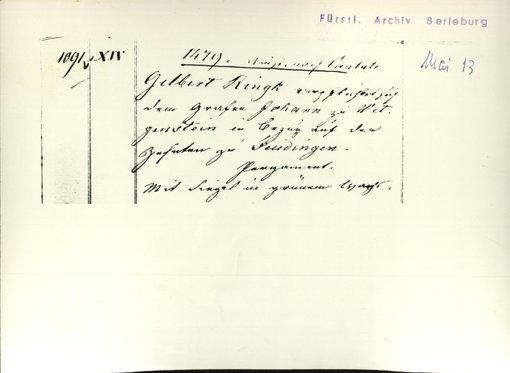 Fürstl. Archiv Berleburg
1091 XIV
1479. nach Cantate
Mai 13
Gelbert Ringk verpflichtet sich
dem Grafen Johann zu Wit-
genstein in Bezug auf den
Zehnten zu Feudingen.
Pergament.
Mit Siegel in grünem Wachs.